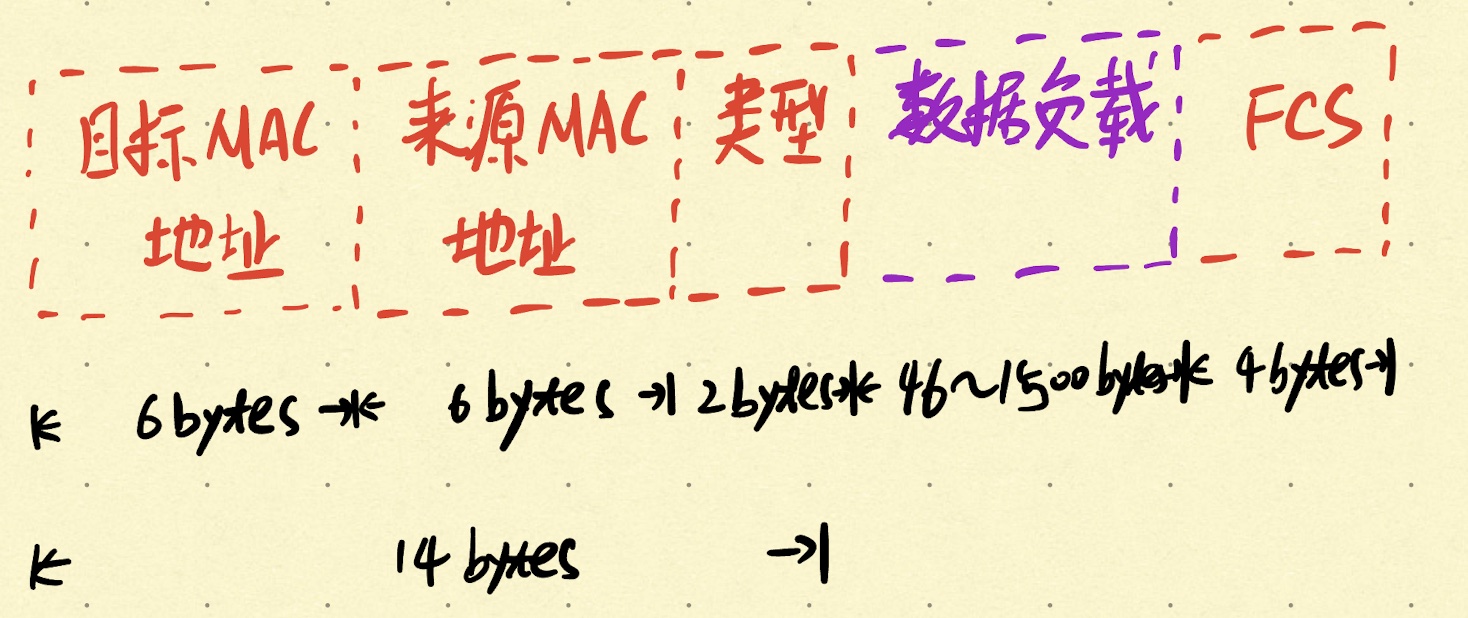 目标MAC 来源MAC 类型 数据负载 FCS
地址 地址
6 bytes 6 bytes 2 bytes 46~1500 bytes 4 bytes
14 bytes